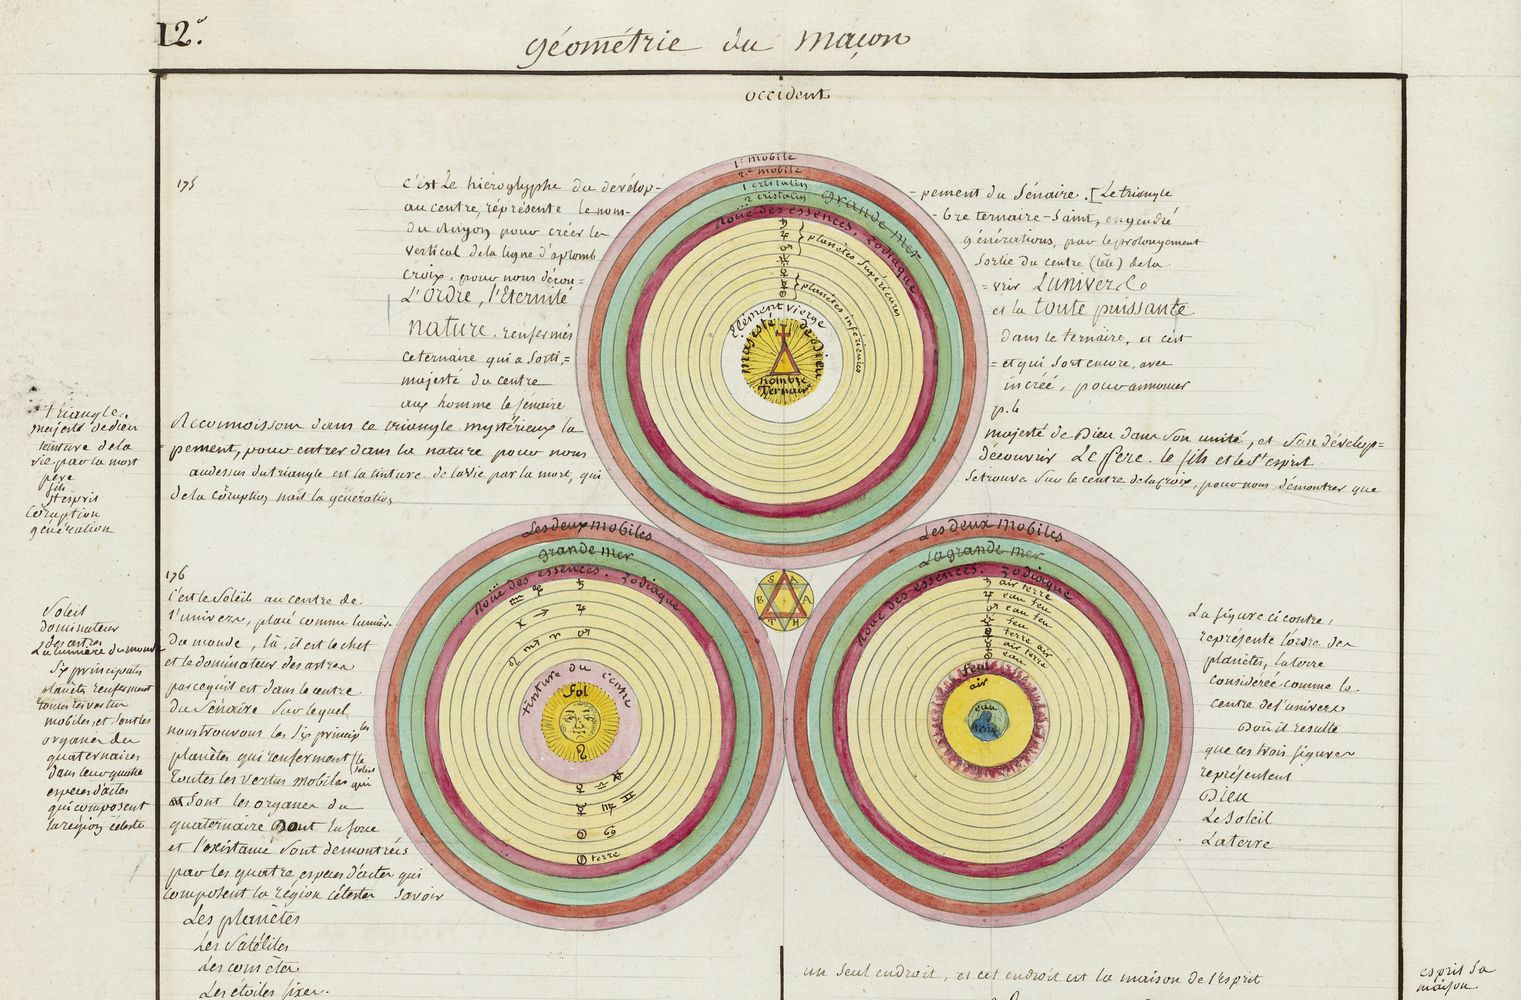 12.e
Géométrie du maçon
occident
175
c'est Le hiéroglyphe du dévelop-
au centre, réprésente le nom-
du rayon pour créer les
vertical de la ligne d'aplomb
croix, pour nous décou=
L'ordre, l'Eternité
nature, renfermés
ce ternaire qui a sorti,=
majesté du centre
aux homme le sénaire
-pement du Sénaire. [Le triangle
-bre ternaire-Saint, engendré
générations, par le prolongement
Sortie du centre (tête) de la
=vrir L'univers
et la toute puissante
dans le ternaire, et c'est
=et qui sort encore, avec
incréé, pour annoncer
p. 6
Reconnoissons dans ce triangle mystérieux la
pement, pour entrer dans la nature pour nous
audessus du triangle est la tinture de la vie par la mort, qui
de la coruption nait la génération
majesté de Dieu dans son unité, et son dévelop=
découvrir Le père, le fils et le St esprit
se trouve sur le centre de la croix, pour nous démontrer que
triangle.
majesté de dieu
tinture de la
vie par la mort
père
fils
St esprit
coruption
génération
1er mobile
2e mobile
1 cristalin
2 cristalin
grande mer
Roue des essences. zodiaque
♄
♃
♂
☿
planètes supérieures
planètes inférieures
Elément vierge
majesté de Dieu
nombre
Ternaire
Les deux mobiles
grande mer
Roue des essences. zodiaque
♒ ♑ ♄
♓ ♐ ♃
♌ ♏ ♈ ♂
tinture du centre
Sol
♌
♀ ♎ ♉
☿ ♍ ♊
♋
terre
S A
B A
T H
Les deux mobiles
La grande mer
Roue des essences. zodiaque
♄ air terre
♃ eau feu
♂ eau feu
feu
terre
air
air terre
eau
feu
air
eau
terre
176
C'est le Soleil au centre de
l'univers, placé comme lumière
du monde, là, il est le chef
et le dominateur des astres
parcequ'il est dans le centre
du Sénaire sur lequel
nous trouvons les six principles
planètes qui renferment [le soleil
toutes les vertus mobiles qui
sont les organes du
quaternaire Dont la force
et l'existance sont demontrées
par les quatre especes d'actes qui
composent la région célestes savoir
Les planètes
Les Satélites
Les comètes
Les étoiles fixes.
Soleil
dominateur
des astres
La lumière du monde
six principals
planètes renferment
toutes les vertus
mobiles, et sont les
organes du
quaternaires
dans leur quatre
especes d'actes
qui composent
la région céleste
La figure ci contre,
représente l'ordre des
planètes, la terre
considérée comme le
centre de l'univers
Doù il resulte
que ces trois figures
représentent
Dieu
Le Soleil
La terre
un seul endroit, et cet endroit est la maison de l'esprit
esprit sa
maison